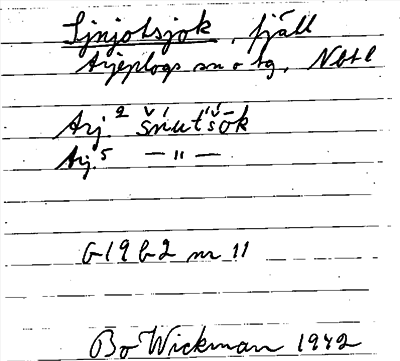 Sjnjotsjok, fjäll
Arjeplogs sn o tg, Nbtl
Arj. 2 šnut́šōk
Arj. 5 — " —
G19 b2 nr 11
Bo Wickman 1942